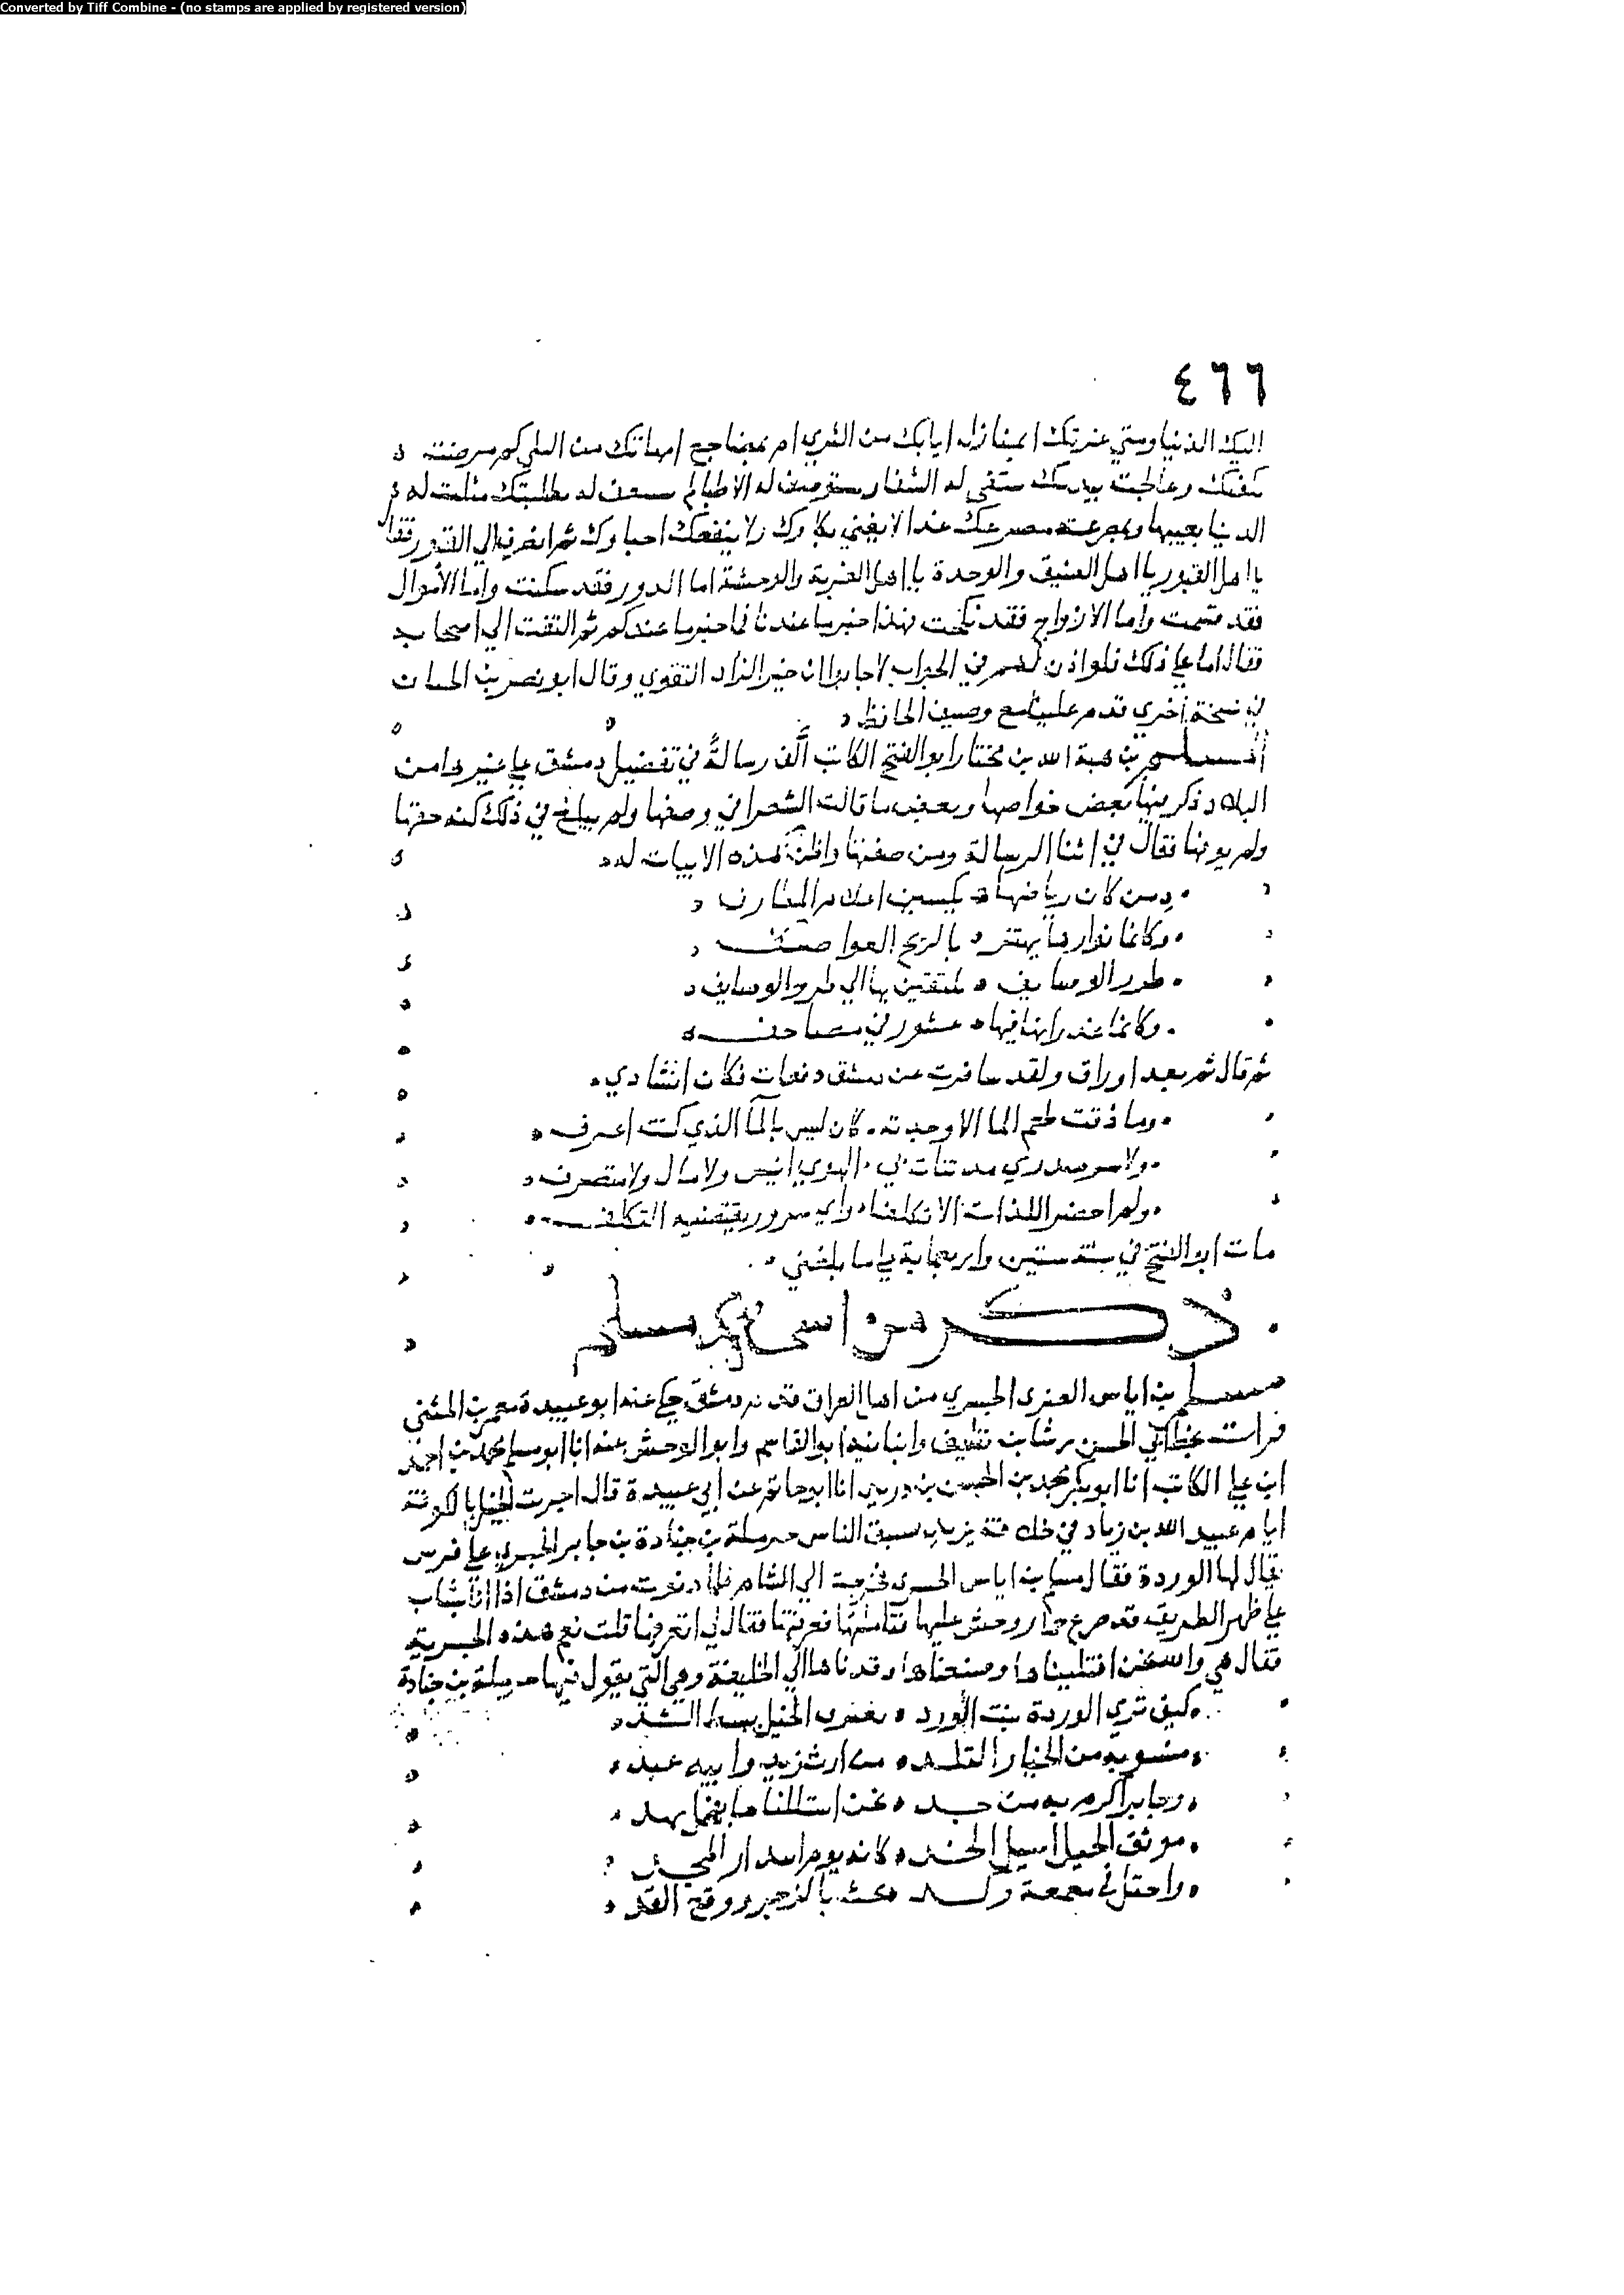 Converted by Tiff Combine - (no stamps are applied by registered version)
٤٦٦
اليك الدنيا ومتي غرتك ابمنازل ابايك من الثري ام بمضاجع امهاتك من البلي كم مرضت
بكفيك وعالجت بيديك ستغي له الشفا وستوصف له الاطبا لم تسعف له بطلبتك مثلت له
الدنيا بعيبها وبمصرعه مصرعك غدا لا يغني بكاوك ولا ينفعك احباوك ثم انصرف الي القبور فقال
يا اهل القبور يا اهل الضيق والوحدة يا اهل الغربة والوحشة اما الدور فقد سكنت واما الأموال
فقد قسمت واما الازواج فقد نكحت فهذا خبر ما عندنا فما خبر ما عندكم ثم التفت الي اصحابه
فقال اما علي ذلك فلو اذن لهم في الجواب لاجابوا ان خير الزاد التقوي وقال ابو نصر بن الحسان
في نسخة اخري قدم علينا مع وصيف الحافظ
المسلم بن هبة الله بن مختار ابو الفتح الكاتب ألف رسالةً في تفضيل دمشق علي غيرها من
البلاد ذكر فيها بعض خواصها وبعض ما قالت الشعرا في وصفها ولم يبلغ في ذلك كنه حقها
ولم يوفها فقال في اثنا الرسالة ومن صفتها واظن هذه الابيات له
دمن كان رياضها يكسين اعلام المطارف
وكانما نوارها يهتز بالريح العواصف
طرر الوصايف يلتقين بها الي طرر الوصايف
وكانما غدرانها فيها عشور في مصاحف
ثم قال ثم بعد اوراق ولقد سافرت عن دمشق دفعات فكان انشادي
وما ذقت طعم الما الا وجدته كان ليس بالما الذي كنت اعرف
ولا سر صدري مذ تنات بي النوي انيس ولا مال ولا متصرف
ولم احضر اللذات الا تكلفا واي سرور يقتضيه التكلف
مات ابو الفتح في سنة ستين واربعماية علي ما بلغني
ذكر من اسمه مسلم
مسلم بن اياس العنزي الجسري من اهل العراق قدم دمشق حكي عنه ابو عبيدة معمر بن المثني
قرات بخط ابي الحسن رشا بن نظيف وانبانيه ابو القاسم وابو الوحش عنه انا ابو مسلم محمد بن احمد
ابن علي الكاتب انا ابو بكر محمد بن الحسن بن دريد انا ابو حاتم عن ابي عبيدة قال اجريت الخيل بالكوفة
ايام عبيد الله بن زياد في خلافة يزيد سبق الناس حرملة بن جنادة بن جابر الجسري علي فرس
يقال لها الوردة فقال مسلم بن اياس الجسري فخرجت الي الشام فلما دنوت من دمشق اذا انا بشاب
علي ظهر الطريق قد صرع حمار وحش عليها فتاملتها فعرفتها فقال لي اتعرفها قلت نعم هذه الجسرية
فقال هي والله نحن افتليناها وصنعناها وقدناها الي الخليفة وهي التي يقول فيها حرملة بن جنادة
كيف تري الوردة بنت الورد
وجابر اكرم به من جد
واحتل في معمعة بالزجر ووقع القد